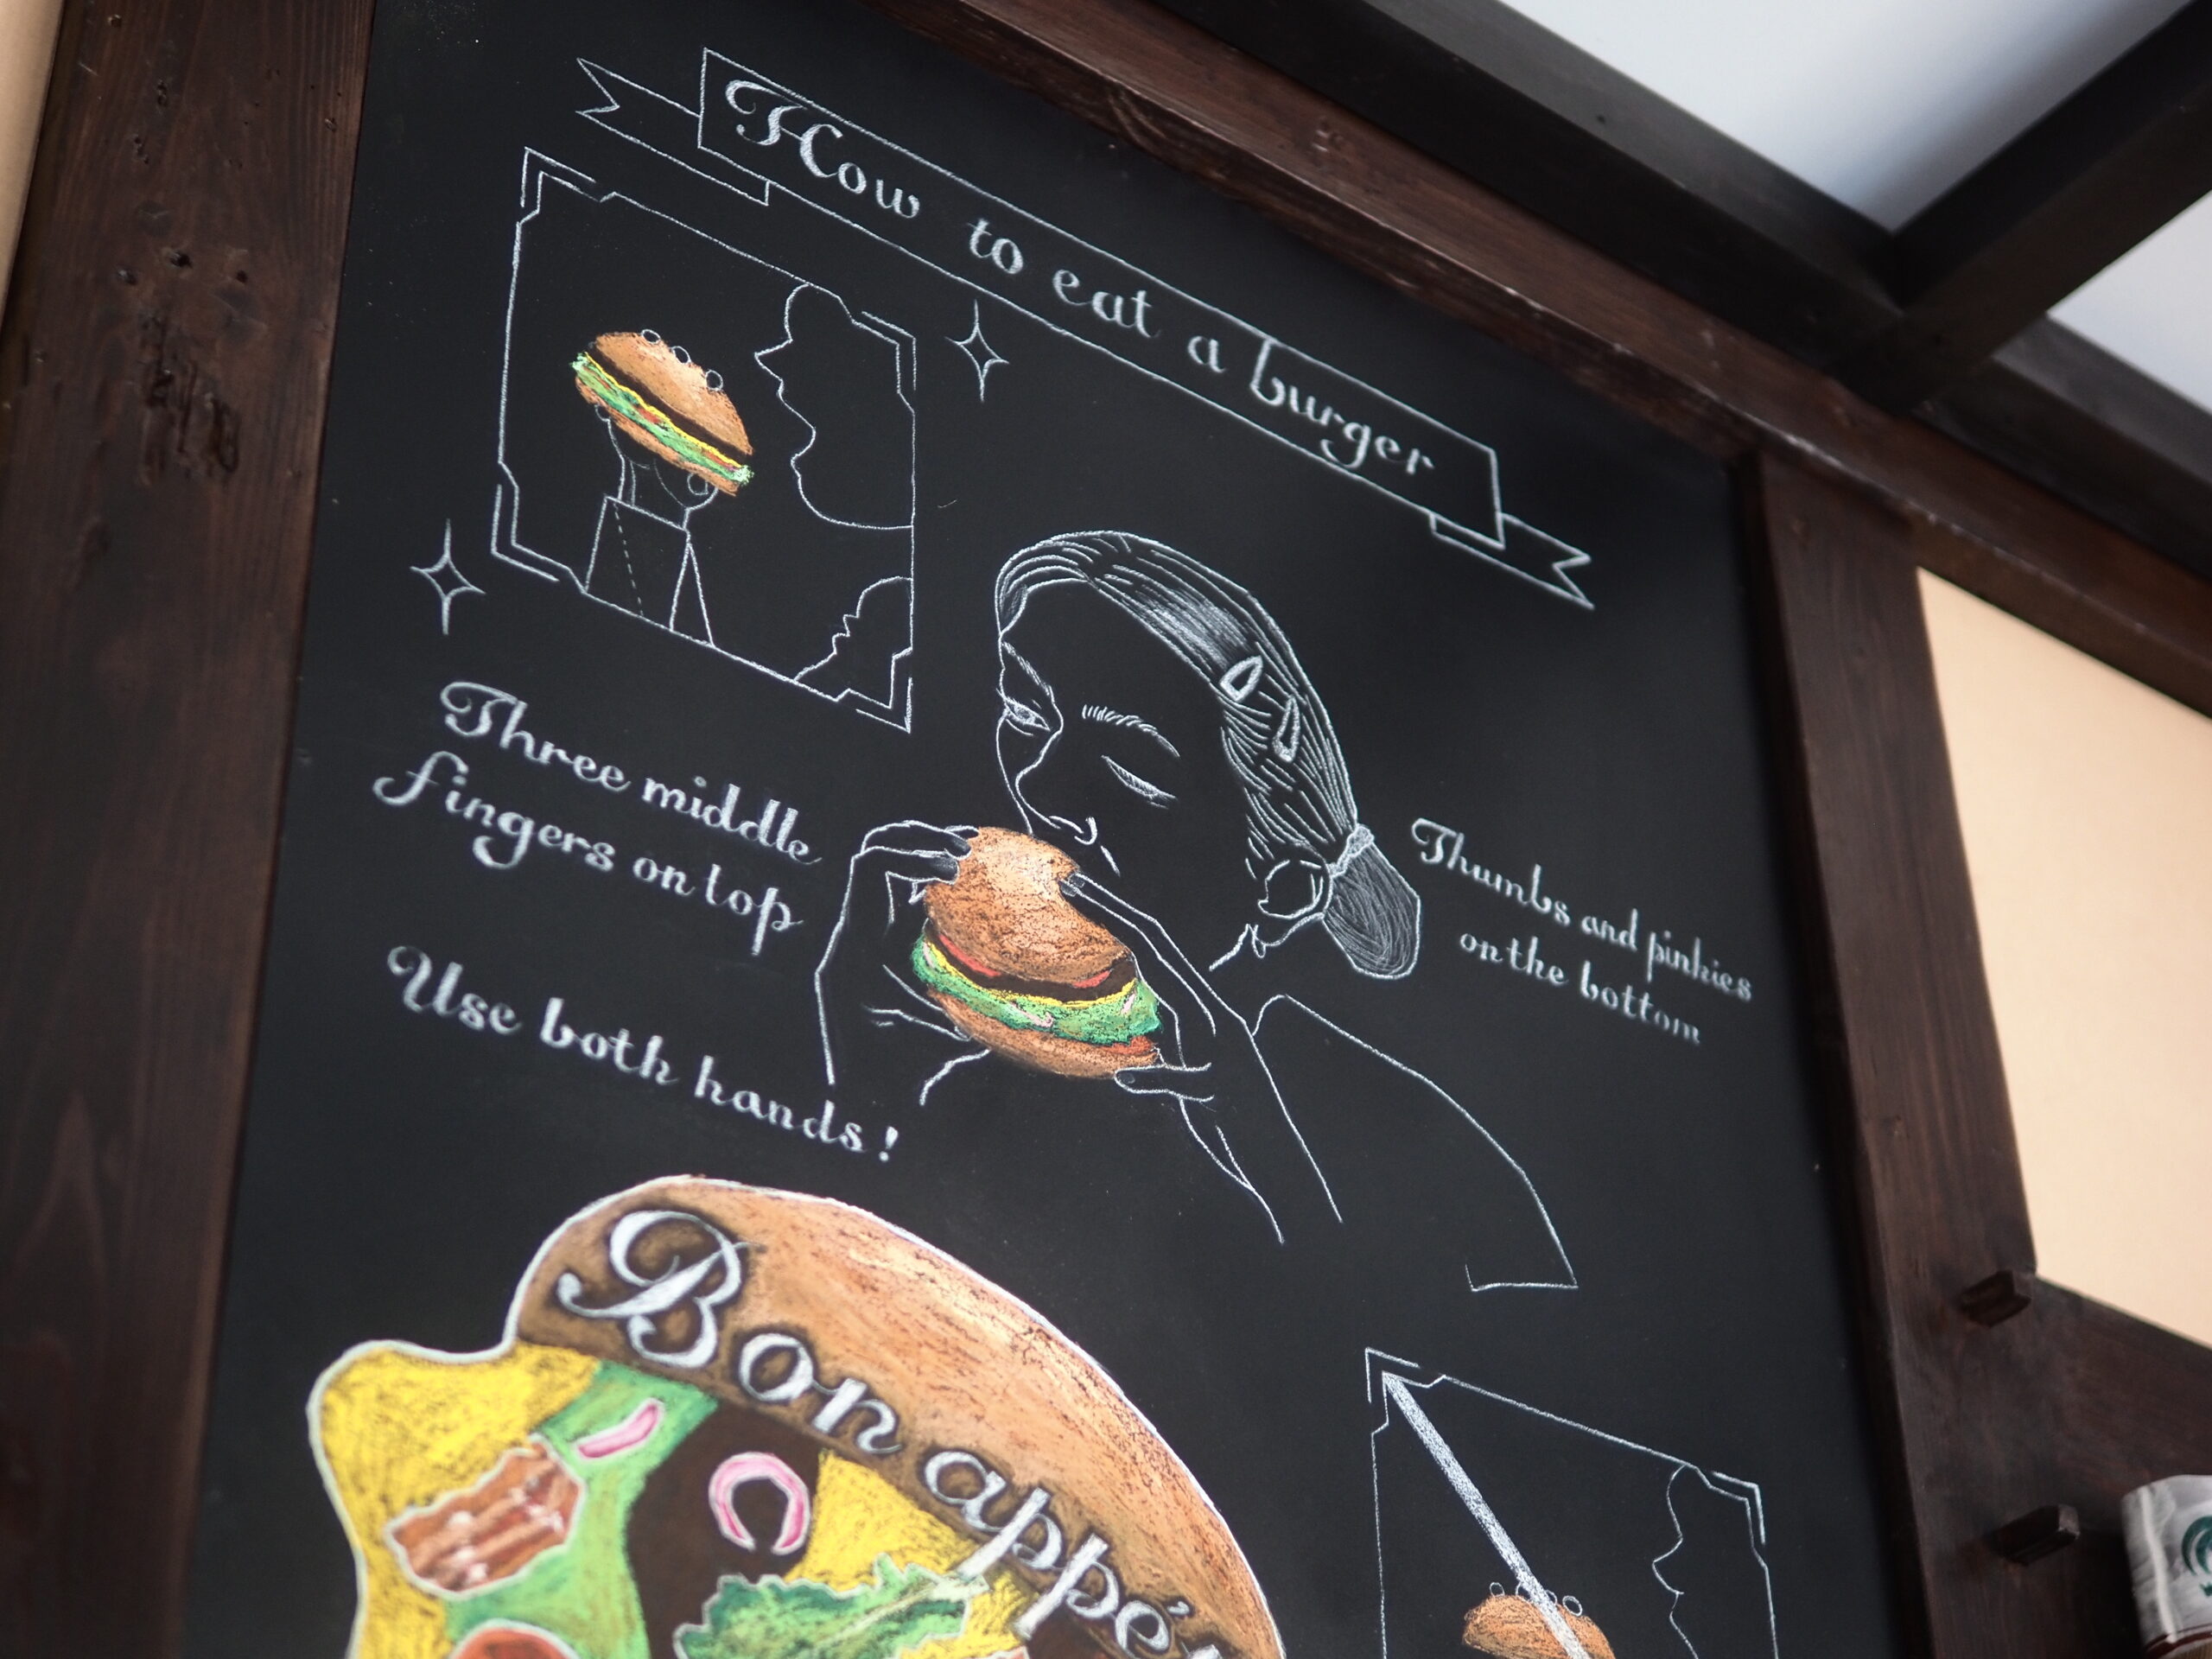 How to eat a burger
Three middle
fingers on top
Use both hands!
Thumbs and pinkies
on the bottom
Bon appét